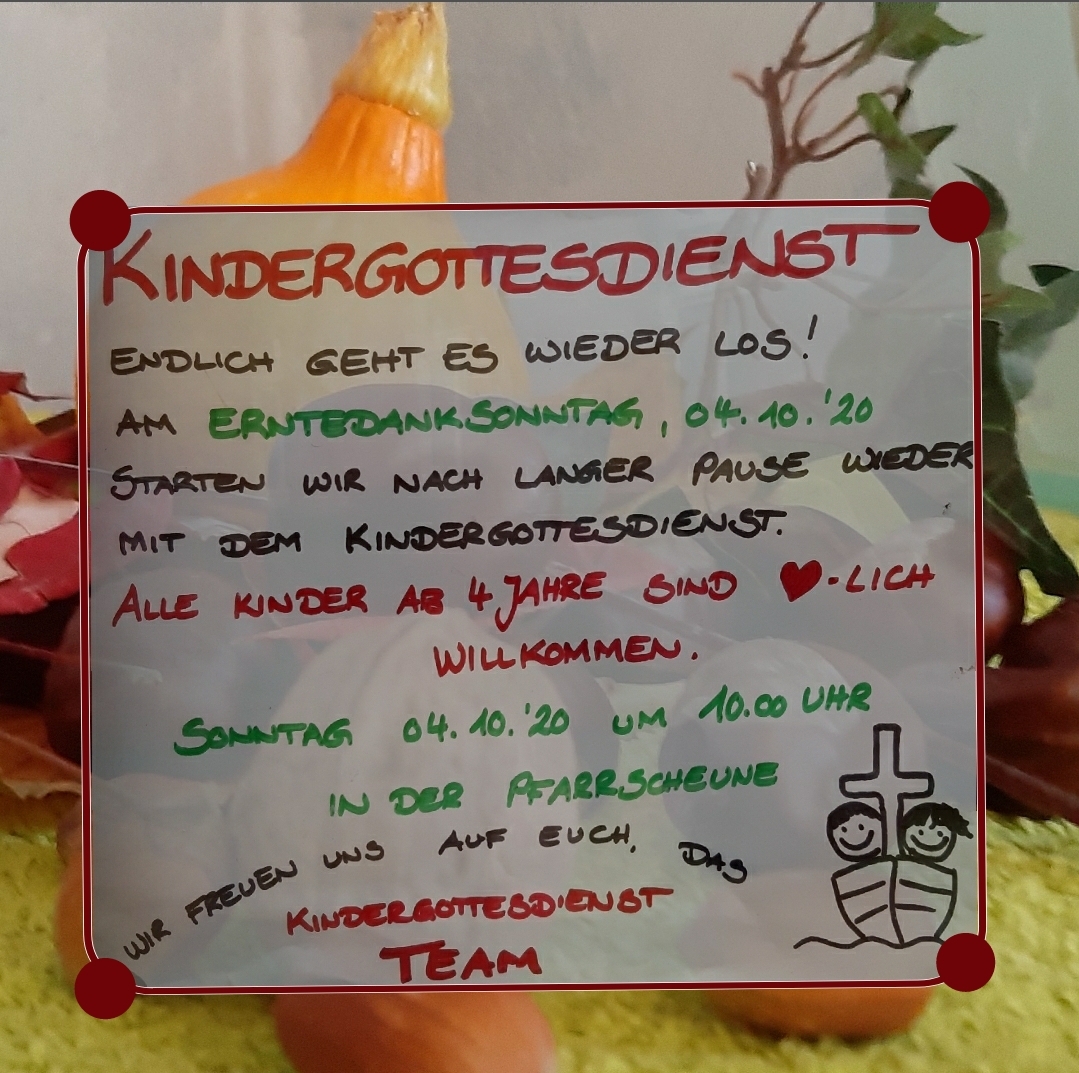 KINDERGOTTESDIENST
ENDLICH GEHT ES WIEDER LOS!
AM ERNTEDANKSONNTAG, 04.10.'20
STARTEN WIR NACH LANGER PAUSE WIEDER
MIT DEM KINDERGOTTESDIENST.
ALLE KINDER AB 4 JAHRE SIND ♥-LICH
WILLKOMMEN.
SONNTAG 04.10.'20 UM 10.00 UHR
IN DER PFARRSCHEUNE
WIR FREUEN UNS AUF EUCH, DAS
KINDERGOTTESDIENST
TEAM